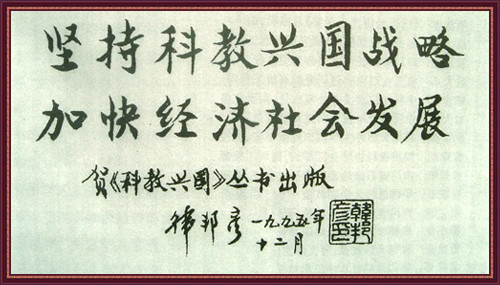 坚持科教兴国战略
加快经济社会发展
贺《科教兴国》丛书出版
韩邦彦 一九九五年
十二月
韩邦彦印